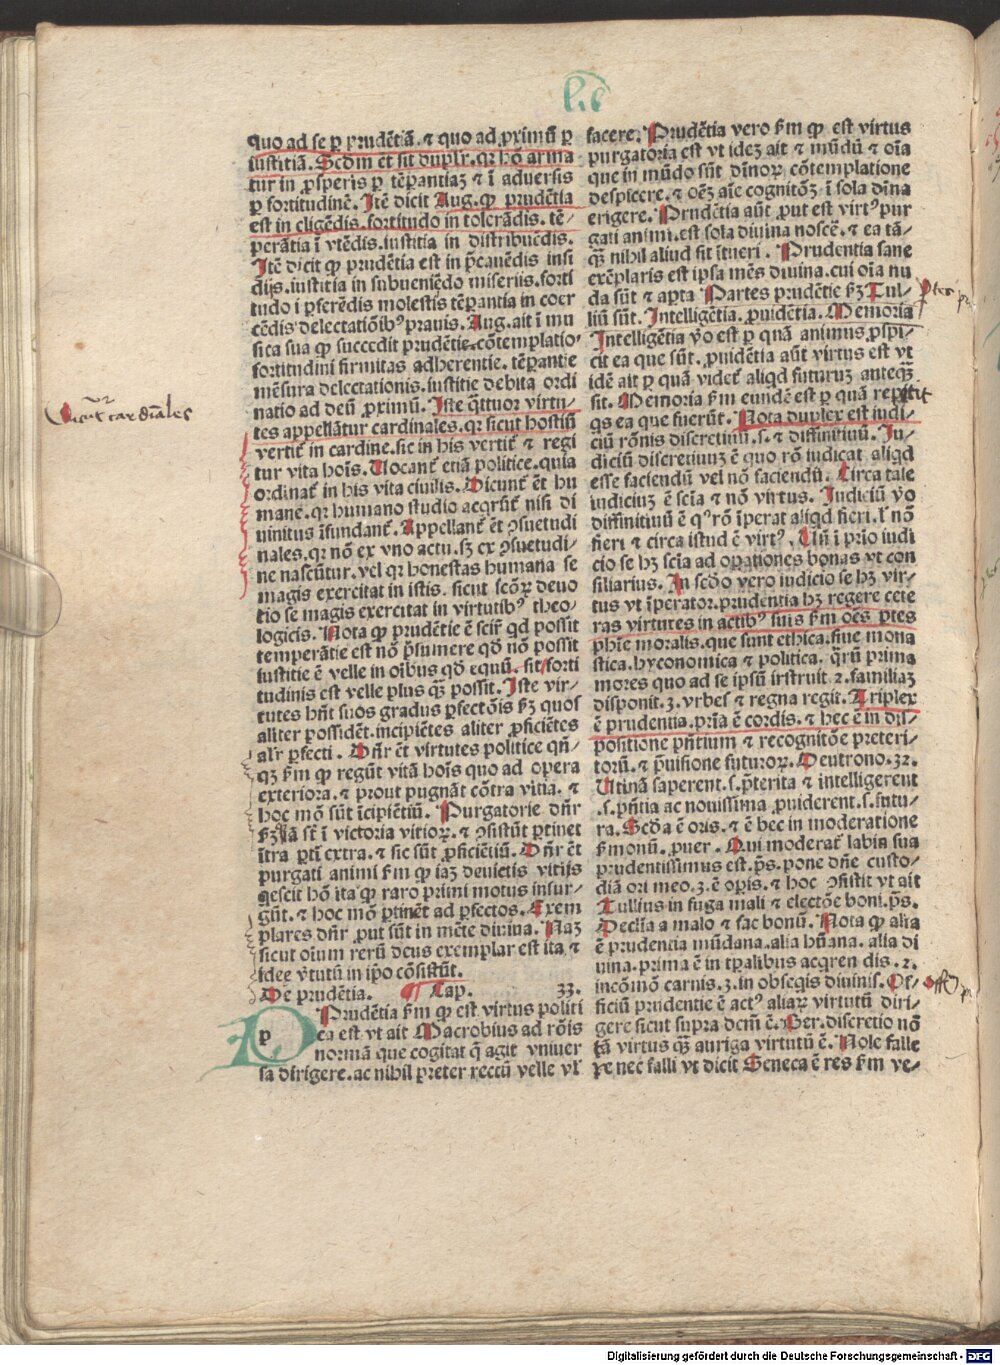 lib
quo ad se ꝑ prudētiā. ⁊ quo ad ꝓximū ꝑ
iustitiā. Scdm ēt sit duplr. qꝛ hō arma
tur in ꝓsperis ꝑ tēꝑantiaꝫ ⁊ ī aduersis
ꝑ fortitudinē. Itē dicit Aug. ꝙ prudētia
est in eligēdis. fortitudo in tolerādis. tē-
perātia ī vtēdis. iustitia in distribuēdis.
Itē dicit ꝙ prudētia est in p̄cauēdis insi
dijs. iustitia in subueniēdo miserijs. forti
tudo ī ꝑferēdis molestis tēꝑantia in coer
cēdis delectatiōibꝰ prauis. Aug. ait ī mu
sica sua ꝙ succedit prudētie. cōtemplatio
fortitudini firmitas adherentie. tēꝑantie
mēsura delectationis. iustitie debita ordi
natio ad deū ꝓximū. Iste q̄ttuor virtu-
tes appellātur cardinales. qꝛ sicut hostiū
vertit̄ in cardine. sic in his vertit̄ ⁊ regi
tur vita hoīs. Uocant̄ etiā politice. quia
ordinat̄ in his vita ciuilis. Dicunt̄ ēt hu
mane. qꝛ humano studio acqrūt̄ nisi di
uinitus īfundant̄. Appellant̄ ēt ꝯsuetudi
nales. qꝛ nō ex vno actu. sꝫ ex ꝯsuetudi-
ne nascūtur. vel qꝛ honestas humana se
magis exercitat in istis. sicut scōꝝ deuo
tio se magis exercitat in virtutibꝰ theo-
logicis. Nota ꝙ prudētie ē scir̄ qd possit
temperātie est nō p̄sumere qd nō possit
iustitie ē velle in oībus qd equū. sit forti
tudinis est velle plus q̄ꝫ possit. Iste vir-
tutes hn̄t suos gradus ꝑfectōis sꝫ quos
aliter possidēt. incipiētes aliter ꝓficiētes
alr̄ ꝑfecti. Dn̄r ēt virtutes politice qn̄-
qꝫ ẜm ꝙ regūt vitā hoīs quo ad opera
exteriora. ⁊ prout pugnāt cōtra vitia. ⁊
hoc mō sūt īcipiētiū. Purgatorie dn̄r
īt̄ra ꝑti extra. ⁊ sic sūt ꝓficiētiū. Dn̄r ēt
purgati animi ẜm ꝙ iaꝫ deuictis vitijs
qescit hō ita ꝙ raro primi motus insur-
gūt. ⁊ hoc mō ꝑtinēt ad ꝑfectos. Exem
plares dn̄r ꝓut sūt in mēte diuina. Naꝫ
sicut oīum rerū deus exemplar est ita ⁊
idee v̄tutū in ip̄o cōsistūt.
De prudētia. Cap. 33.
p Prudētia ẜm ꝙ est virtus politi
ca est vt ait Macrobius ad rōis
normā que cogitat q̄ agit vniuer
sa dirigere. ac nihil preter rectū velle vl̄
facere. Prudētia vero ẜm ꝙ est virtus
purgatoria est vt ideꝫ ait ⁊ mūdū ⁊ oīa
que in mūdo sūt dīnoꝝ cōtemplatione
despicere. ⁊ oēꝫ aīe cogitōꝫ ī sola dīna
erigere. Prudētia aūt ꝓut est virtꝰ pur
gati animi. est sola diuina noscē. ⁊ ea tā-
q̄ꝫ nihil aliud sit ītueri. Prudentia sane
exēplaris est ipsa mēs diuina. cui oīa nu
da sūt ⁊ apta Partes prudētie sꝫ Tul-
liū sūt. Intelligētia. ꝓuidētia. Memoria
Intelligētia v̄o est ꝑ quā animus ꝓspi-
cit ea que sūt. ꝓuidētia aūt virtus est vt
idē ait ꝑ quā videt̄ aliqd futuruꝫ anteq̄ꝫ
sit. Memoria ẜm eundē est ꝑ quā repetit
qs ea que fuerūt. Nota duplex est iudi-
ciū rōnis discretiuū. s. ⁊ diffinitiuū. Iu-
diciū discretiuuꝫ ē quo rō iudicat aliqd
esse faciendū vel nō faciendū. Circa tale
iudiciuꝫ ē scīa ⁊ nō virtus. Iudiciū v̄o
diffinitiuū ē qͦ rō īperat aliqd fieri. l̄ nō
fieri ⁊ circa istud ē virtꝰ. Uñ ī prīo iudi
cio se hꝫ scīa ad oꝑationes bonas vt con
siliarius. In scd̄o vero iudicio se hꝫ vir-
tus vt īperator. prudentia hꝫ regere cete
ras virtutes in actibꝰ suis ẜm oēs ꝑtes
phīe moralis. que sunt ethica. siue mona
stica. hyconomica ⁊ politica. q̄rū prima
mores quo ad se ipsū instruit 2. familiaꝫ
disponit. 3. vrbes ⁊ regna regit. Triplex
ē prudentia. prīa ē cordis. ⁊ hec ē in dis-
positione pn̄tium ⁊ recognitōe preteri-
torū. ⁊ p̄uisione futuroꝝ. Deutrono. 32.
Utinā saperent. s. p̄terita ⁊ intelligerent
.s. pn̄tia ac nouissima ꝓuiderent. s. futu-
ra. Scd̄a ē oris. ⁊ ē hec in moderatione
ẜmonū. ꝓuer. Qui moderat̄ labia sua
prudentissimus est. ps̄. pone dn̄e custo-
diā ori meo. 3. ē oꝑis. ⁊ hoc ꝯsistit vt ait
Tullius in fuga mali ⁊ electōe boni. ps̄.
Declīa a malo ⁊ fac bonū. Nota ꝙ alia
ē prudencia mūdana. alia hūana. alia di
uina. prima ē in tꝑalibus acqren dis. 2.
incōmō carnis. 3. in obseqis diuinis. Of-
ficiū prudentie ē actꝰ aliaꝝ virtutū diri-
gere sicut supra dcm̄ ē. Ber. discretio nō
tā virtus q̄ꝫ auriga virtutū ē. Nole falle
re nec falli vt dicit Seneca ē res ẜm ve-
cardinales
Digitalisierung gefördert durch die Deutsche Forschungsgemeinschaft - DFG